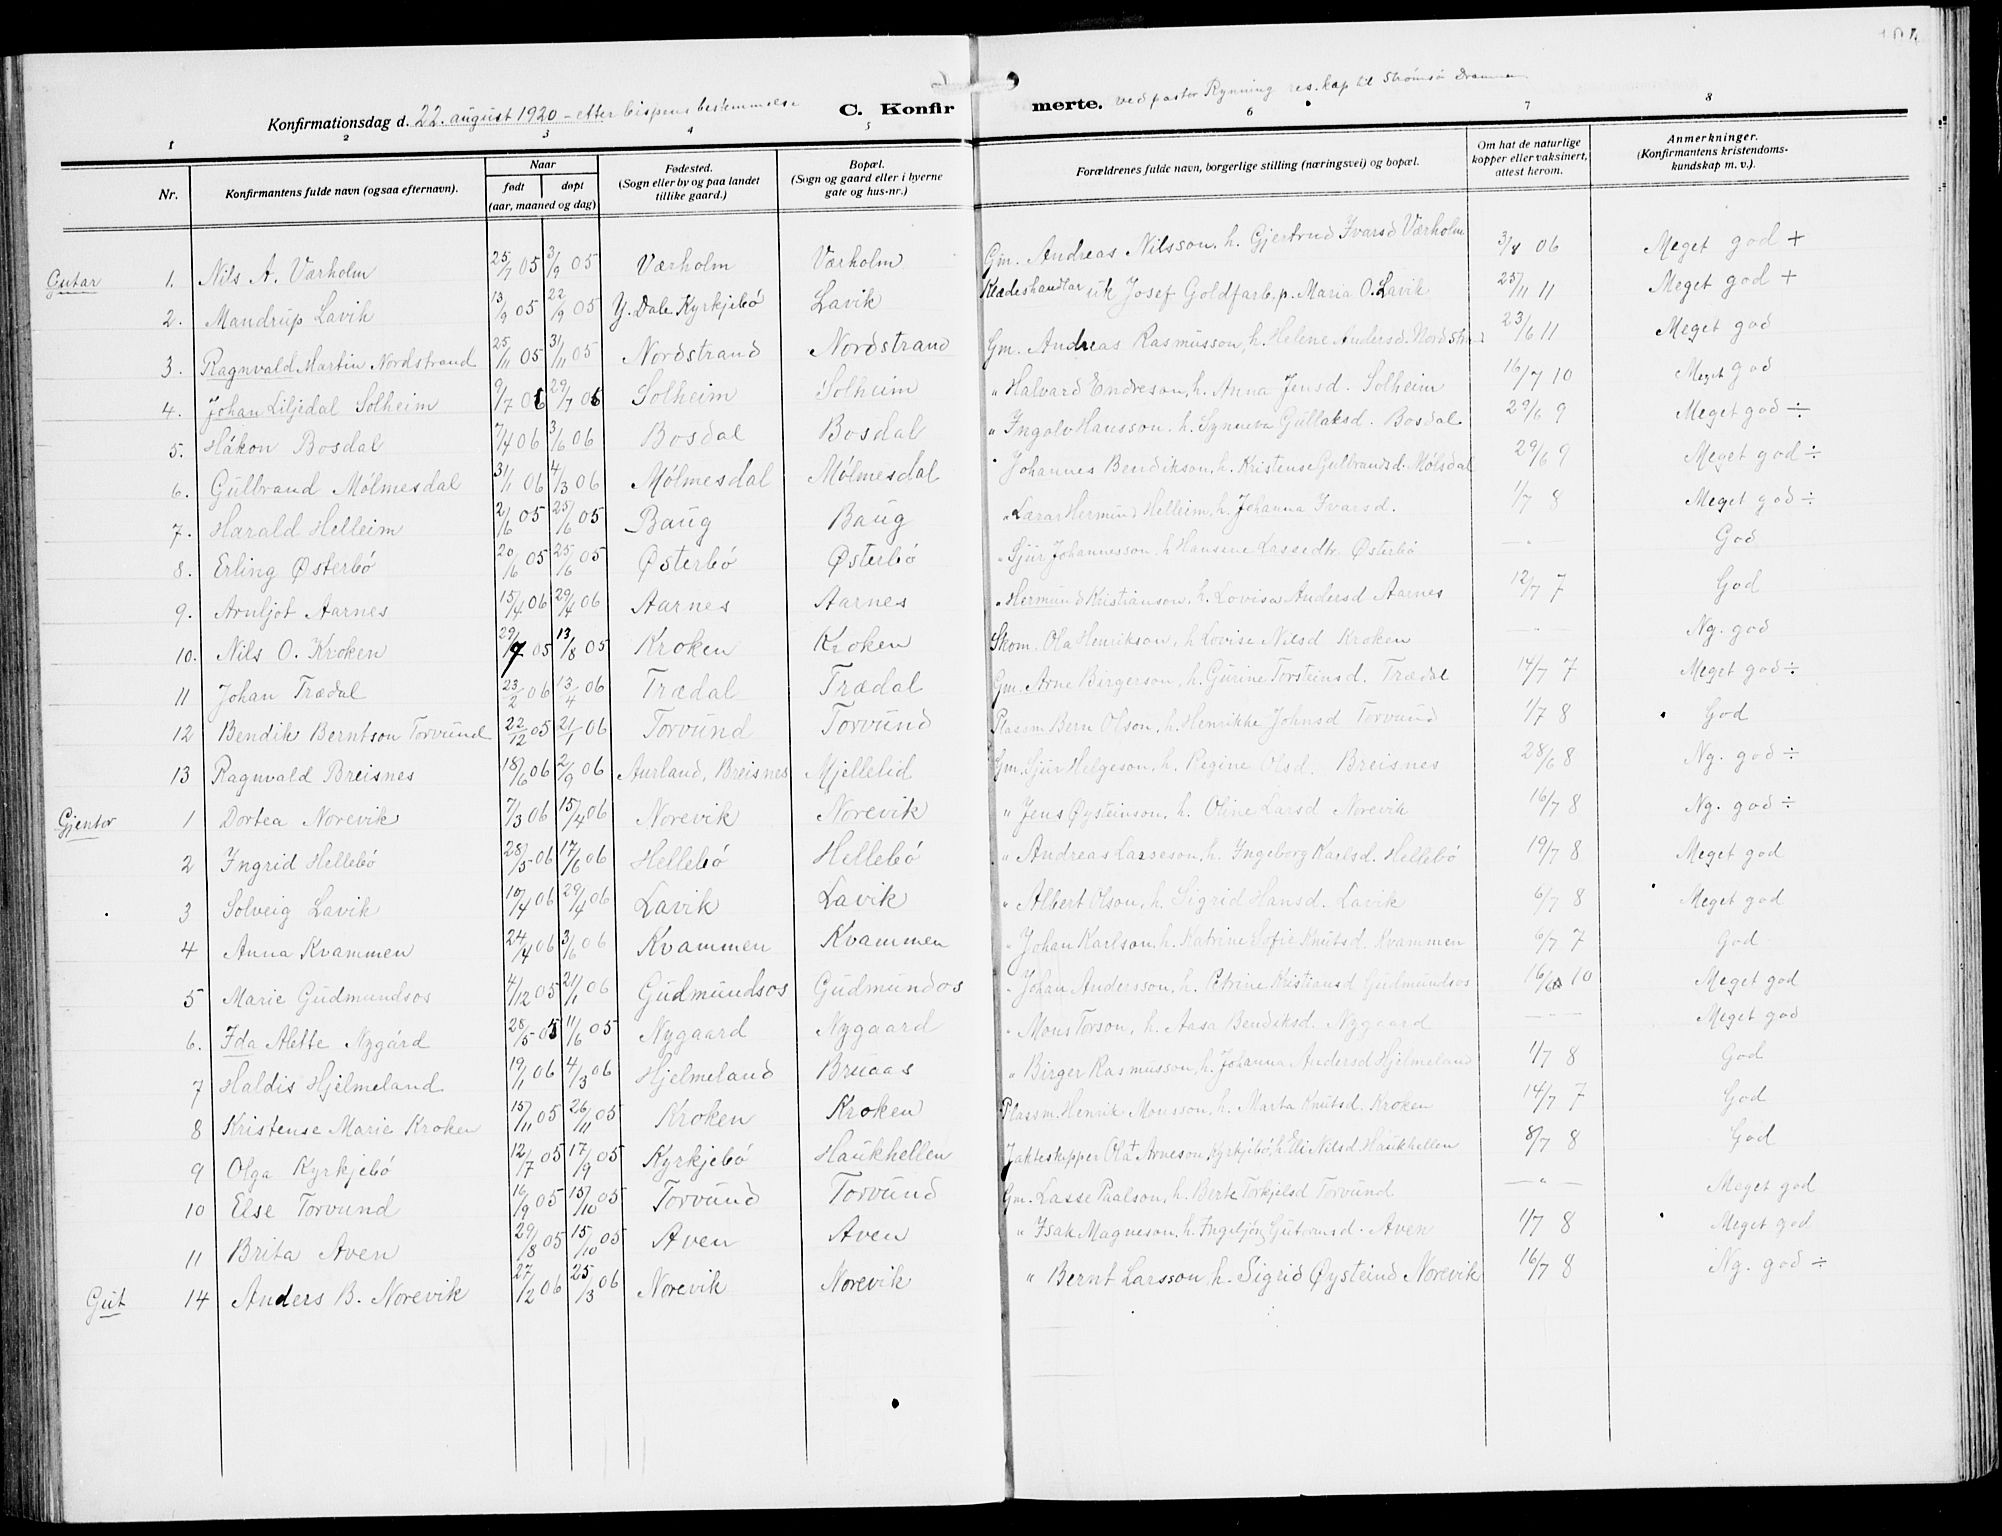 C. Konfirmerte.
Konfirmationsdag d. 22. august 1920 - etter bispens bestemmelse
ved pastor Rynning res. kap til Strömsö Drammen
1 2 3 4 5 6 7 8
Nr. | Konfirmantens fulde navn (ogsaa efternavn). | Naar født døpt (aar, maaned og dag) | Fødested. (Sogn eller by og paa landet tillike gaard.) | Bopæl. (Sogn og gaard eller i byerne gate og hus-nr.) | Forældrenes fulde navn, borgerlige stilling (næringsvei) og bopæl. | Om hat de naturlige kopper eller vaksinert, attest herom. | Anmerkninger. (Konfirmantens kristendomskundskap m. v.).
Gutar 1. Nils A. Værholm 25/7 05 3/9 05 Værholm Værholm Gm. Andreas Nilsson, h. Gjertrud Ivarsd Værholm 3/8 06 Meget god +
2. Mandrup Lavik 13/9 05 22/9 05 Y. Dale. Kyrkjebö Lavik Klædeshandlar uk Josef Goldfarb, p. Maria O. Lavik 25/11 11 Meget god +
3. Ragnvald Martin Nordstrand 25/11 05 31/11 05 Nordstrand Nordstrand Gm. Andreas Rasmusson, h. Helene Andersd. Nordstr 23/6 11 Meget god
4. Johan Liljedal Solheim 9/7 05 29/7 05 Solheim Solheim " Halvard Endreson, h. Anna Jensd. Solheim 16/7 10 Meget god
5. Håkon Bosdal 7/4 06 3/6 06 Bosdal Bosdal " Ingolv Hansson, h. Synneva Gullaksd. Bosdal 29/6 9 Meget god ÷
6. Gulbrand Mølmesdal 31/1 06 4/3 06 Mølmesdal Mølmesdal " Johannes Bendikson, h. Kristense Gulbrandsd. Mølsdal 29/6 9 Meget god ÷
7. Harald Helleim 2/6 05 25/6 05 Baug Baug " Lærar Hermund Helleim, h. Johanna Ivarsd. 1/7 8 Meget god ÷
8. Erling Østerbö 20/6 05 25/6 05 Østerbö Østerbö " Sjur Johannesson, h Hansene Lassedtr. Østerbö — " — God
9. Arnljot Aarnes 15/4 06 29/4 06 Aarnes Aarnes " Hermund Kristianson, h. Lovisa Andersd Aarnes 12/7 7 God
10. Nils O. Kroken 29/7 05 13/8 05 Kroken Kroken Skom. Ola Henrikson, h Lovise Nilsd Kroken — — Ng. god
11 Johan Trædal 23/2 06 13/4 06 Trædal Trædal Gm. Arne Birgerson, h. Gurine Torsteinsd. Trædal 14/7 7 Meget god ÷
12 Bendik Berntson Torvund 22/12 05 21/1 06 Torvund Torvund Plassm. Bern Olson, h. Henrikke Johnsd Torvund 1/7 8 God
13 Ragnvald Breisnes 18/6 06 2/9 06 Aurland, Breisnes Mjellelid Gm. Sjur Helgeson, h. Regine Olsd. Breisnes 28/6 8 Ng. god ÷
Gjentor 1 Dortea Norevik 7/3 06 15/4 06 Norevik Norevik " Jens Øysteinson, h. Oline Larsd Norevik 16/7 8 Ng. god ÷
2 Ingrid Hellebö 28/5 06 17/6 06 Hellebö Hellebö " Andreas Lasseson, h. Ingeborg Karlsd. Hellebö 19/7 8 Meget god
3 Solveig Lavik 10/4 06 29/4 06 Lavik Lavik " Albert Olson, h. Sigrid Hansd. Lavik 6/7 8 Meget god
4 Anna Kvammen 24/4 06 3/6 06 Kvammen Kvammen " Johan Karlson, h. Katrine Sofie Knutsd. Kvammen 6/7 7 God
5 Marie Gudmundsos 4/12 05 21/1 06 Gudmundsos Gudmundos " Johan Andersson, h. Petrine Kristiansd Gudmundsos 16/6 10 Meget god
6. Ida Alette Nygård 28/5 05 11/6 05 Nygaard Nygaard " Mons Torson, h. Aasa Bendiksd. Nygaard — — Meget god
7 Haldis Hjelmeland 19/1 06 4/3 06 Hjelmeland Bruaas " Birger Rasmusson, h. Johanna Andersd Hjelmeland 1/7 8 God
8 Kristense Marie Kroken 15/11 05 26/11 05 Kroken Kroken Plassm. Henrik Monsson, h. Marta Knutsd. Kroken 14/7 7 God
9 Olga Kyrkjebö 12/7 05 17/9 05 Kyrkjebö Haukhellen Jakteskipper Ola + Arneson Kyrkjebö, h. Eli Nilsd Haukhellen 8/7 8 God
10 Else Torvund 16/9 05 15/10 05 Torvund Torvund Gm. Lasse Paalson, h. Berte Torkjelsd Torvund — " — Meget god
11 Brita Aven 29/8 05 15/10 05 Aven Aven " Isak Magneson, h. Ingebjörg Gutormsd. Aven 1/7 8 Meget god
Gut 14 Anders B. Norevik 27/2 06 25/3 06 Norevik Norevik " Bernt Larsson h. Sigrid Øysteind Norevik 16/7 8 Ng. god ÷